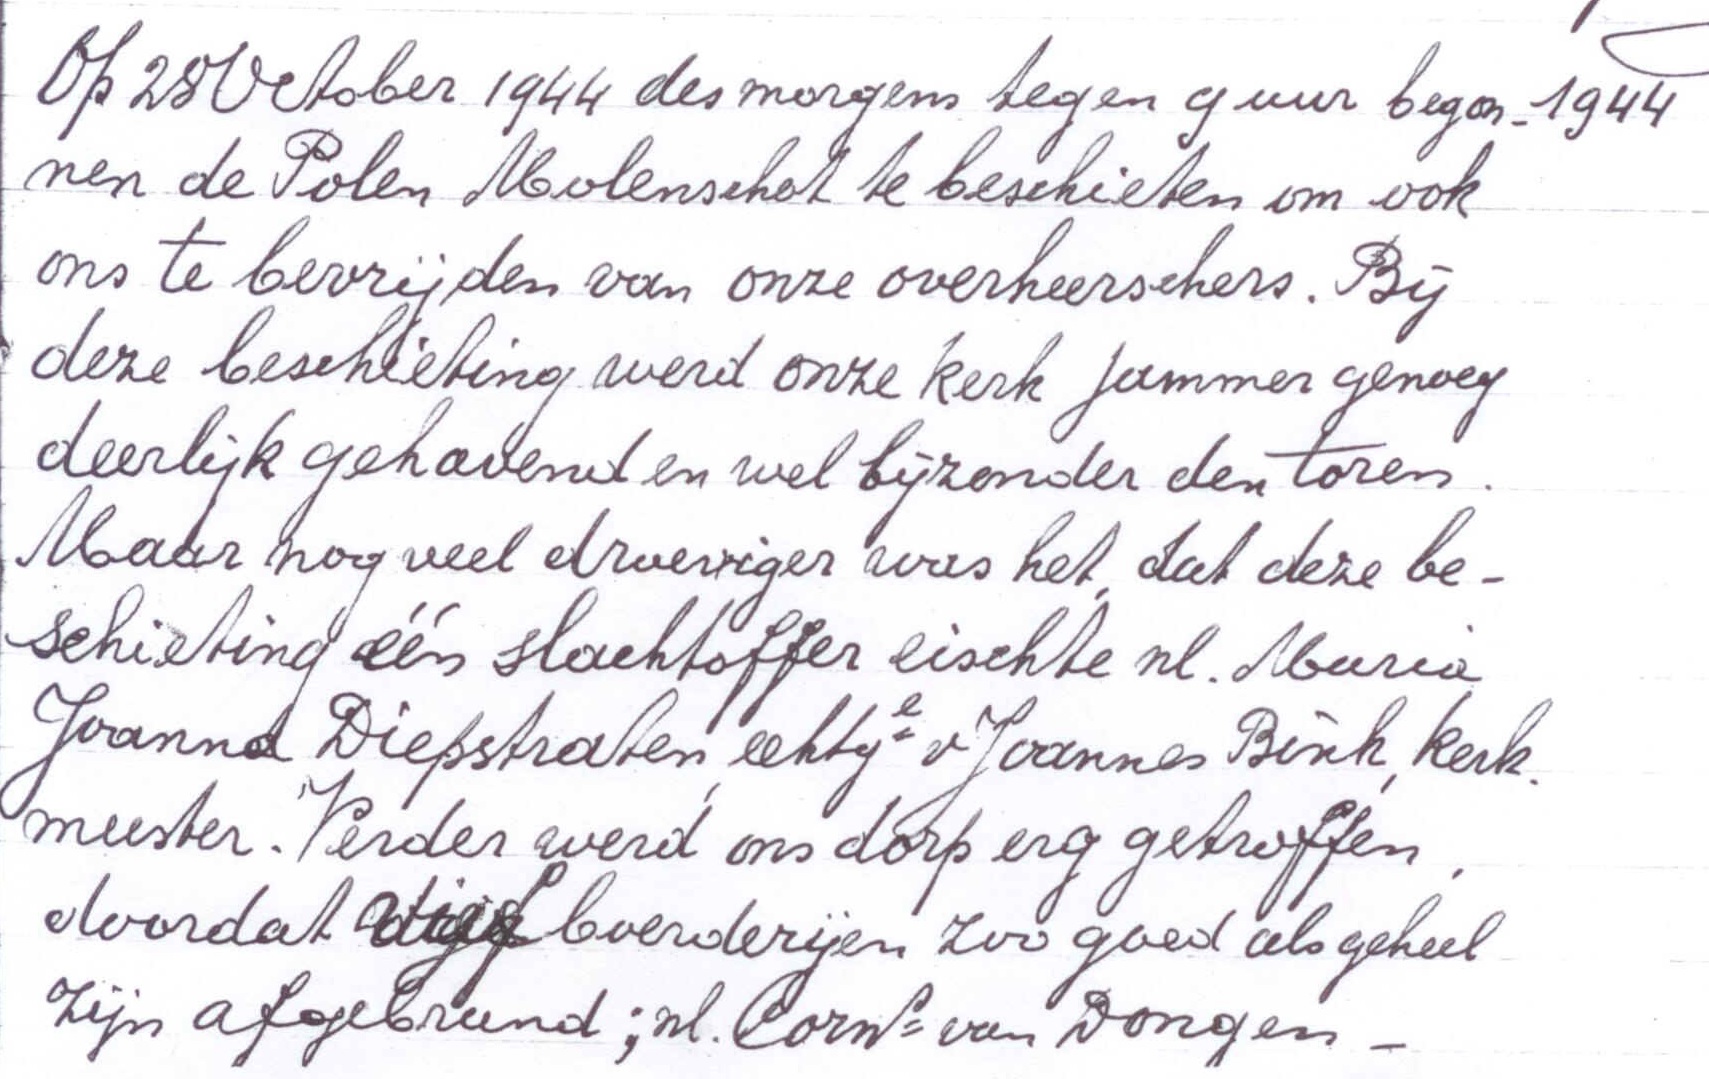 Op 28 October 1944 des morgens tegen 9 uur begon- 1944
nen de Polen Molenschot te beschieten om ook
ons te bevrijden van onze overheerschers. Bij
deze beschieting werd onze kerk jammer genoeg
deerlijk gehavend en wel bijzonder den toren.
Maar nog veel droeviger was het, dat deze be-
schieting één slachtoffer eischte nl. Maria
Joanna Diepstraten, echtge v Joannes Bink, kerk-
meester. Verder werd ons dorp erg getroffen,
doordat vijf boerderijen zoo goed als geheel
zijn afgebrand; nl. Corns van Dongen -